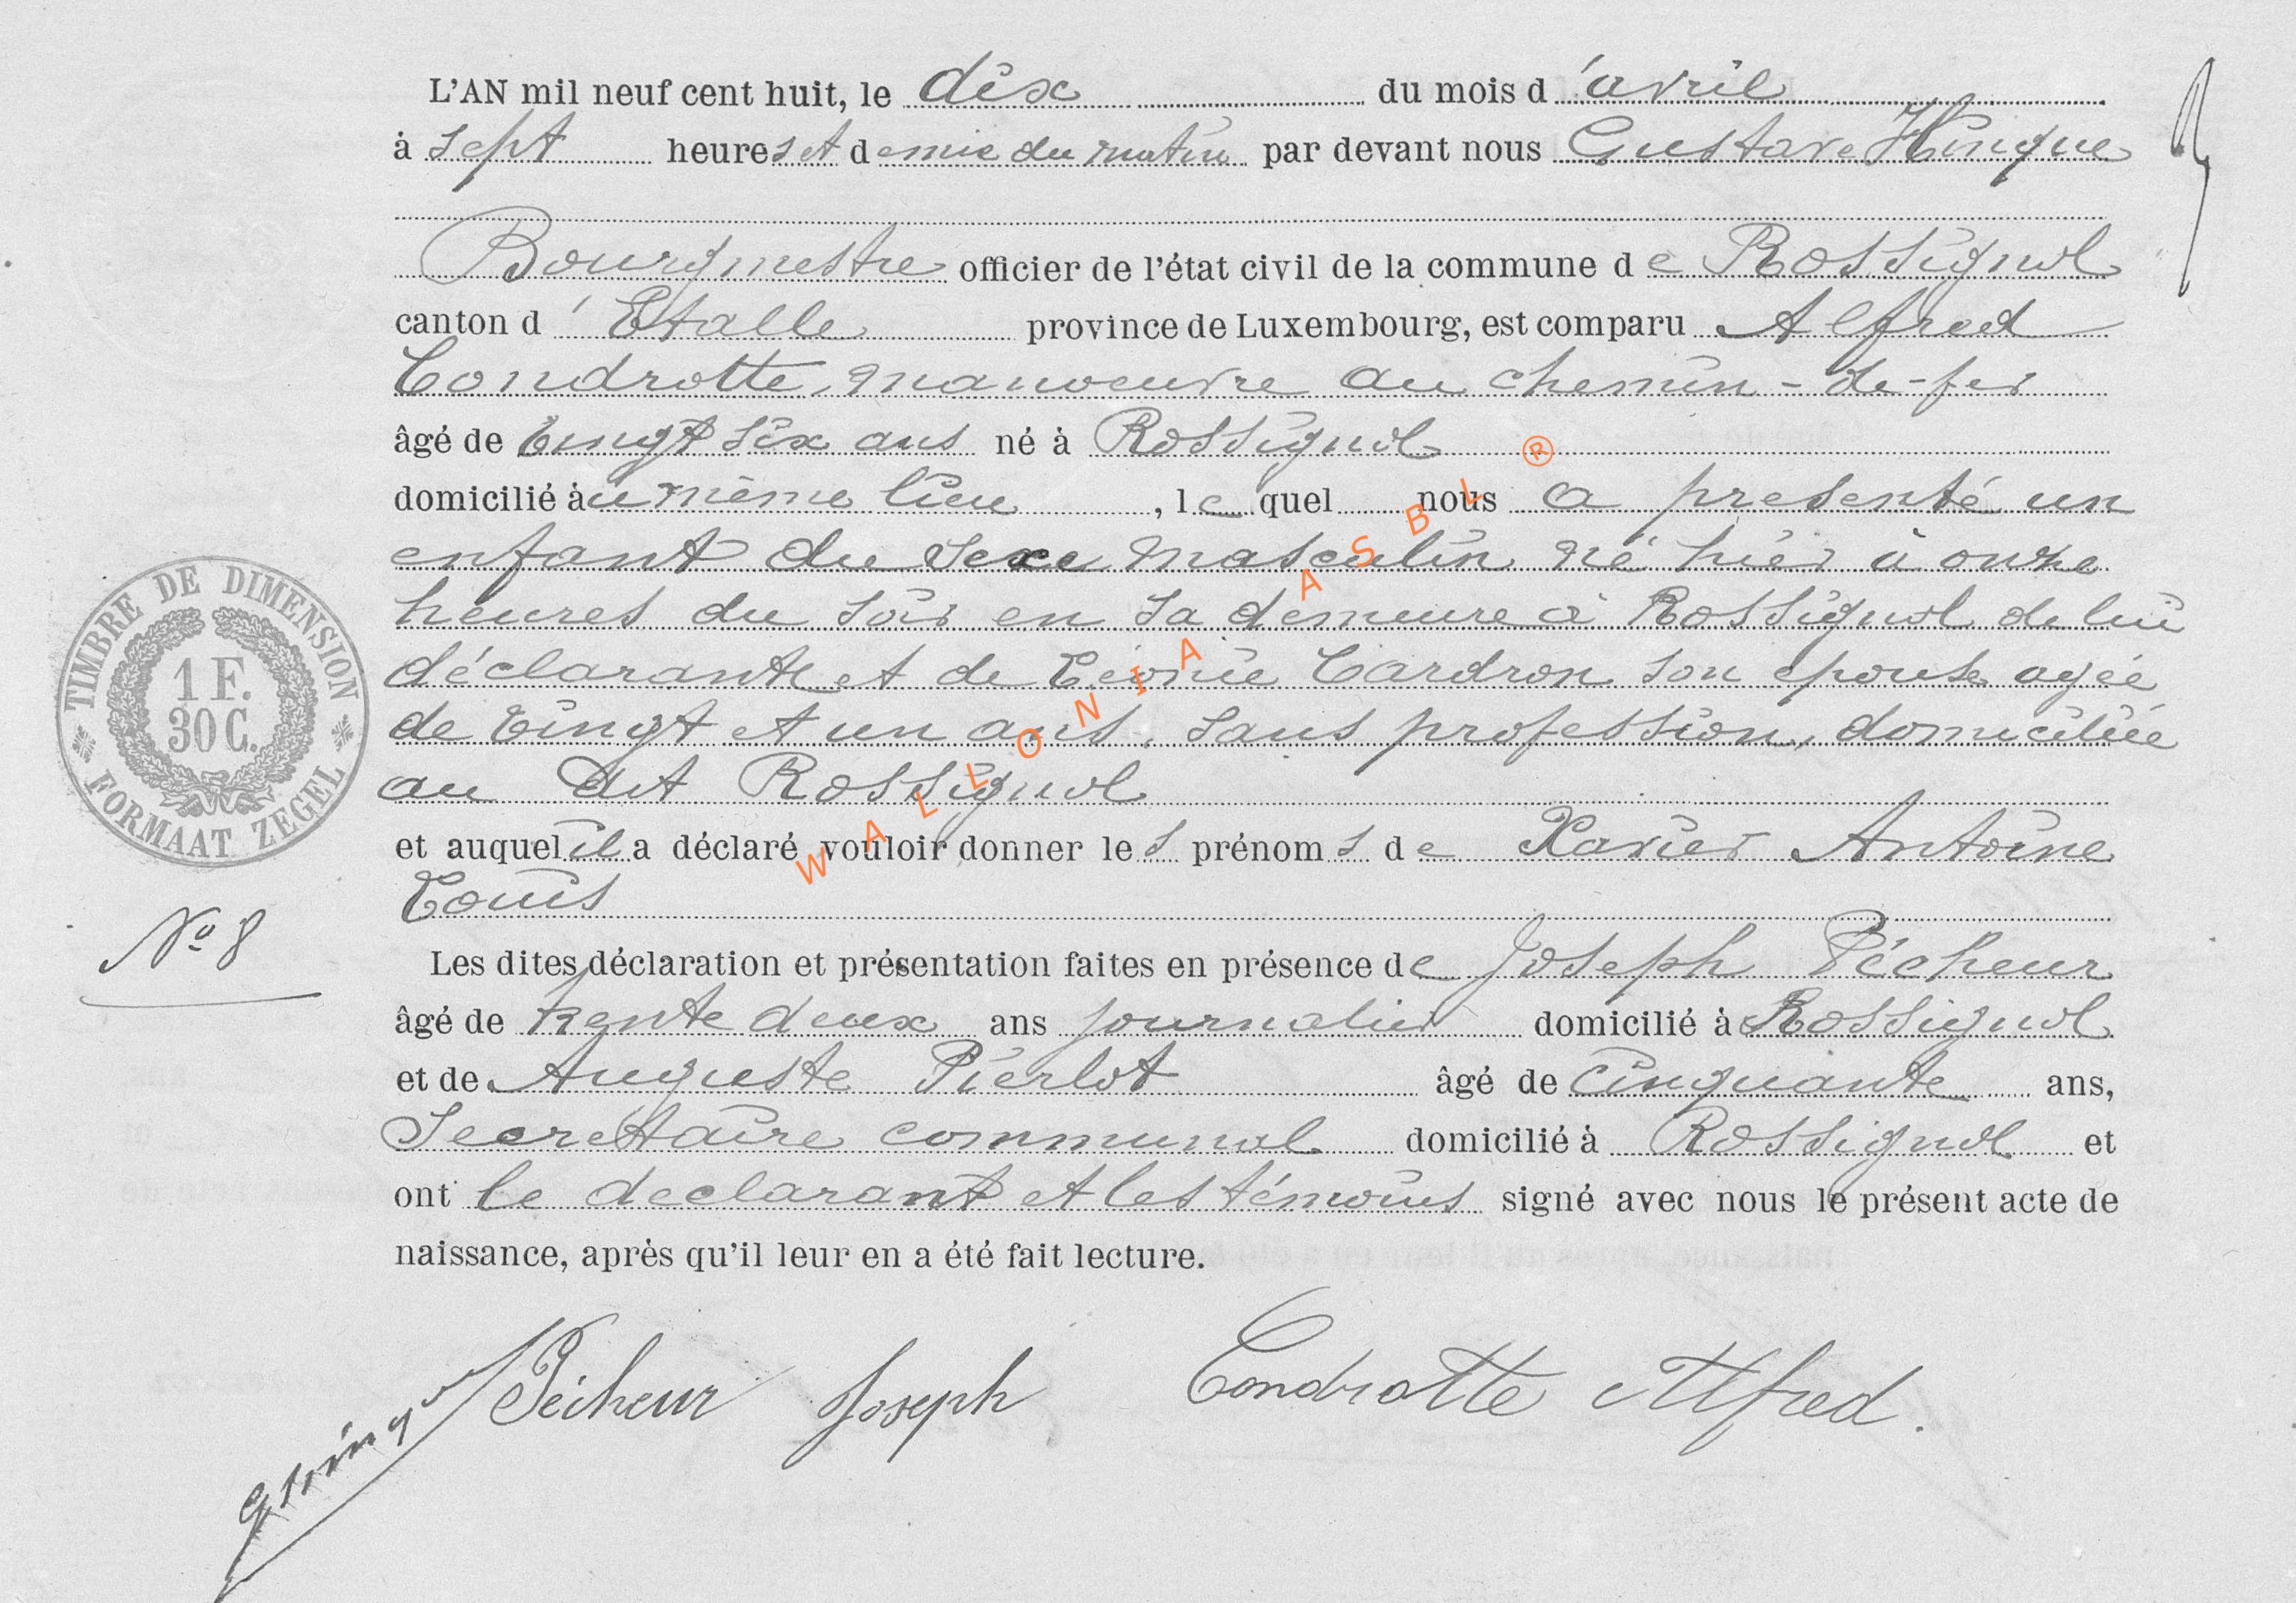 L'AN mil neuf cent huit, le dix du mois d'avril
à sept heures et demie du matin par devant nous Gustave Hinque
Bourgmestre officier de l'état civil de la commune de Rossignol
canton d'Etalle province de Luxembourg, est comparu Alfred
Condrotte, manoeuvre au chemin-de-fer
âgé de vingt six ans né à Rossignol
domicilié au même lieu, lequel nous a presenté un
enfant du sexe masculin né hier à onze
heures du soir en sa demeure à Rossignol de lui
déclarant et de Léonie Cardron son epouse agée
de vingt et un ans, sans profession, domiciliée
au dit Rossignol
et auquel il a déclaré vouloir donner les prénoms de Xavier Antoine
Louis
Les dites déclaration et présentation faites en présence de Joseph Pécheur
âgé de trente deux ans journalier domicilié à Rossignol
et de Auguste Pierlot âgé de cinquante ans,
Secrétaire communal domicilié à Rossignol et
ont le declarant et les témoins signé avec nous le présent acte de
naissance, après qu'il leur en a été fait lecture.
Pécheur Joseph Condrotte Alfred.
TIMBRE DE DIMENSION
1 F.
30 C.
FORMAAT ZEGEL
No 8
WALLONIA ASBL ®